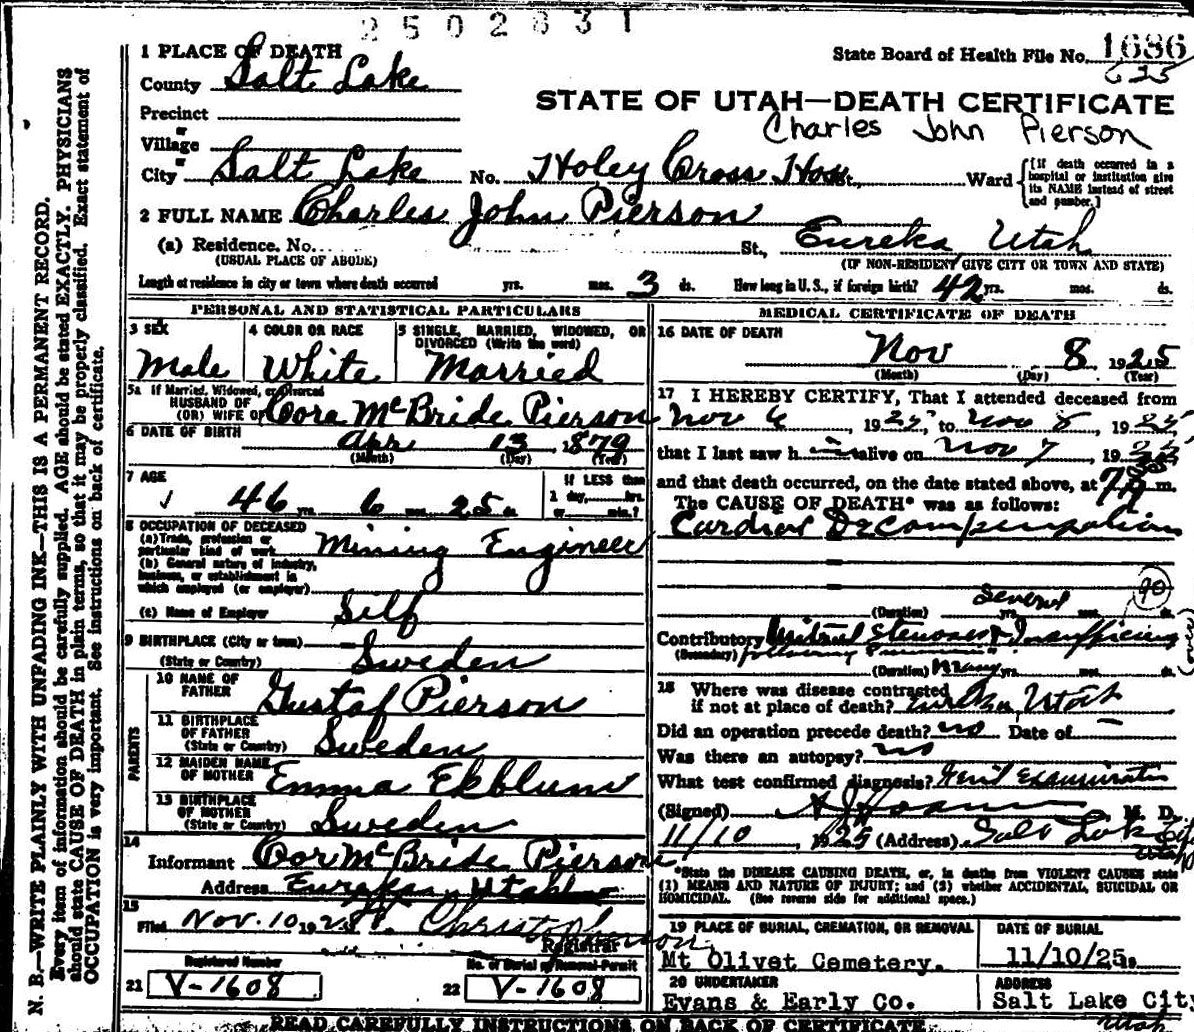 2502831
State Board of Health File No. 1686
625
STATE OF UTAH—DEATH CERTIFICATE
Charles John Pierson
1 PLACE OF DEATH
County Salt Lake
Precinct
or
Village
or
City Salt Lake No. Holey Cross Hos St., Ward
[If death occurred in a
hospital or institution give
its NAME instead of street
and number.]
2 FULL NAME Charles John Pierson
(a) Residence. No. St., Eureka, Utah
(USUAL PLACE OF ABODE) (IF NON-RESIDENT, GIVE CITY OR TOWN AND STATE)
Length of residence in city or town where death occurred yrs. mos. 3 ds. How long in U. S., if foreign birth? 42 yrs. mos. ds.
PERSONAL AND STATISTICAL PARTICULARS
3 SEX 4 COLOR OR RACE 5 SINGLE, MARRIED, WIDOWED, OR
DIVORCED (Write the word)
Male White Married
5a If Married, Widowed, or Divorced
HUSBAND OF
(OR) WIFE OF Cora McBride Pierson
6 DATE OF BIRTH Apr 13 1879
(Month) (Day) (Year)
7 AGE If LESS than
46 yrs. 6 mos. 25 1 day, hrs.
or min.?
8 OCCUPATION OF DECEASED
(a) Trade, profession or
particular kind of work Mining Engineer
(b) General nature of industry,
business, or establishment in
which employed (or employer)
(c) Name of Employer Self
9 BIRTHPLACE (City or town)
(State or Country) Sweden
PARENTS
10 NAME OF
FATHER Gustaf Pierson
11 BIRTHPLACE
OF FATHER
(State or Country) Sweden
12 MAIDEN NAME
OF MOTHER Emma Ekblum
13 BIRTHPLACE
OF MOTHER
(State or Country) Sweden
14
Informant Cor McBride Pierson
Address Eureka Utah
15
Filed Nov. 10 192 Christopherson
Registrar
Registered Number No. of Burial or Removal Permit
21 V-1608 22 V-1608
MEDICAL CERTIFICATE OF DEATH
16 DATE OF DEATH
Nov 8 1925
(Month) (Day) (Year)
17 I HEREBY CERTIFY, That I attended deceased from
Nov 6, 1925, to Nov 8, 1925
that I last saw him alive on Nov 7, 19
and that death occurred, on the date stated above, at m.
The CAUSE OF DEATH* was as follows:
Cardiac Decompensation
90
(Duration) Several yrs. mos. ds.
Contributory Mitral Stenosis & Insufficiency
(Secondary) following
(Duration) Many yrs. mos. ds.
18 Where was disease contracted
if not at place of death? Eureka, Utah
Did an operation precede death? no Date of —
Was there an autopsy? no
What test confirmed diagnosis? Genl Examination
(Signed) M. D.
11/10, 1925 (Address) Salt Lake City
Utah
*State the DISEASE CAUSING DEATH, or, in deaths from VIOLENT CAUSES state
(1) MEANS AND NATURE OF INJURY; and (2) whether ACCIDENTAL, SUICIDAL OR
HOMICIDAL. (See reverse side for additional space.)
19 PLACE OF BURIAL, CREMATION, OR REMOVAL DATE OF BURIAL
Mt Olivet Cemetery. 11/10/25.
20 UNDERTAKER ADDRESS
Evans & Early Co. Salt Lake City
Utah
READ CAREFULLY INSTRUCTIONS ON BACK OF CERTIFICATE
N. B.—WRITE PLAINLY WITH UNFADING INK—THIS IS A PERMANENT RECORD.
Every item of information should be carefully supplied. AGE should be stated EXACTLY. PHYSICIANS
should state CAUSE OF DEATH in plain terms, so that it may be properly classified. Exact statement of
OCCUPATION is very important. See instructions on back of certificate.